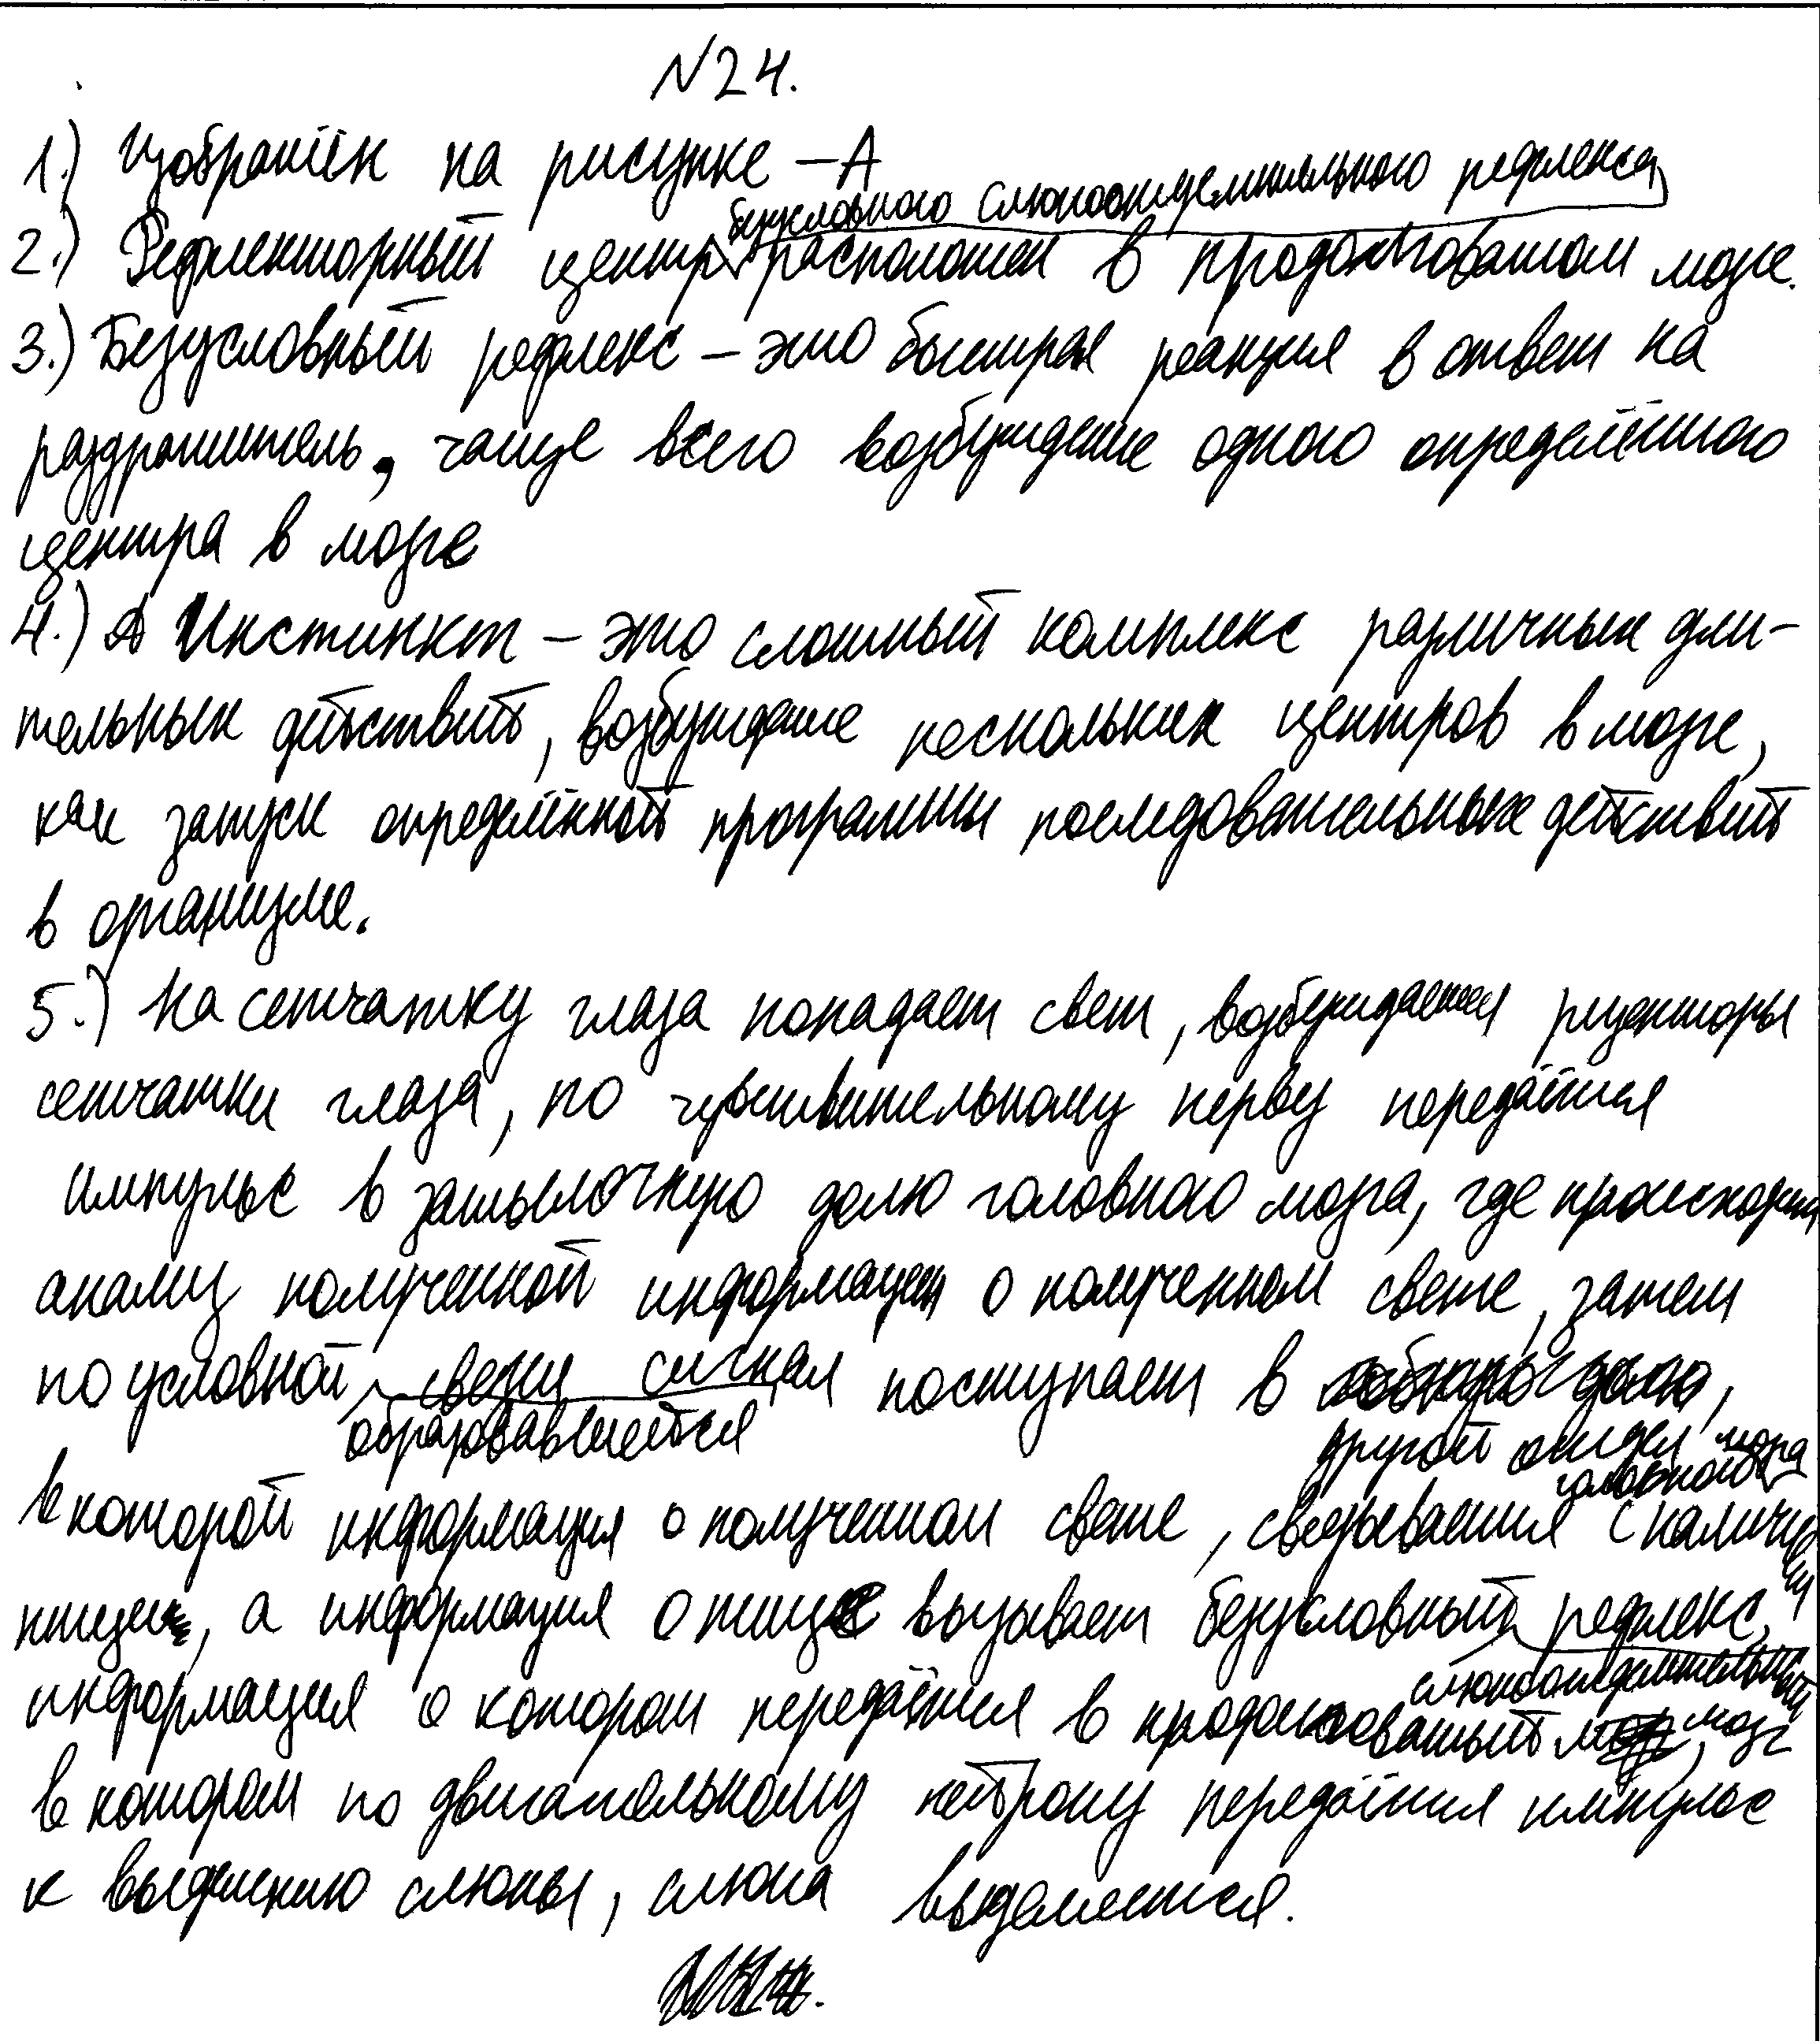 №24.
1.) Изображён на рисунке – А
2.) Рефлекторный центр безусловного слюноотделительного рефлекса расположен в продолговатом мозге.
3.) Безусловный рефлекс – это быстрая реакция в ответ на
раздражитель, чаще всего возбуждение одного определённого
центра в мозге
4.) Инстинкт – это сложный комплекс различных дли-
тельных действий, возбуждение нескольких центров в мозге,
как запуск определённой программы последовательных действий
в организме.
5.) На сетчатку глаза попадает свет, возбуждается рецепторы
сетчатки глаза, по чувствительному нерву передаётся
импульс в затылочную долю головного мозга, где происходит
анализ полученной информации о полученном свете, затем
по условной образовавшейся связи сигнал поступает в другой отдел головного мозга,
в которой информация о полученном свете, связывается с наличием
пищи, а информация о пище вызывает безусловный слюноотделительный рефлекс,
информация о котором передаётся в продолговатый мозг,
в котором по двигательному нейрону передаётся импульс
к выделению слюны, слюна выделяется.